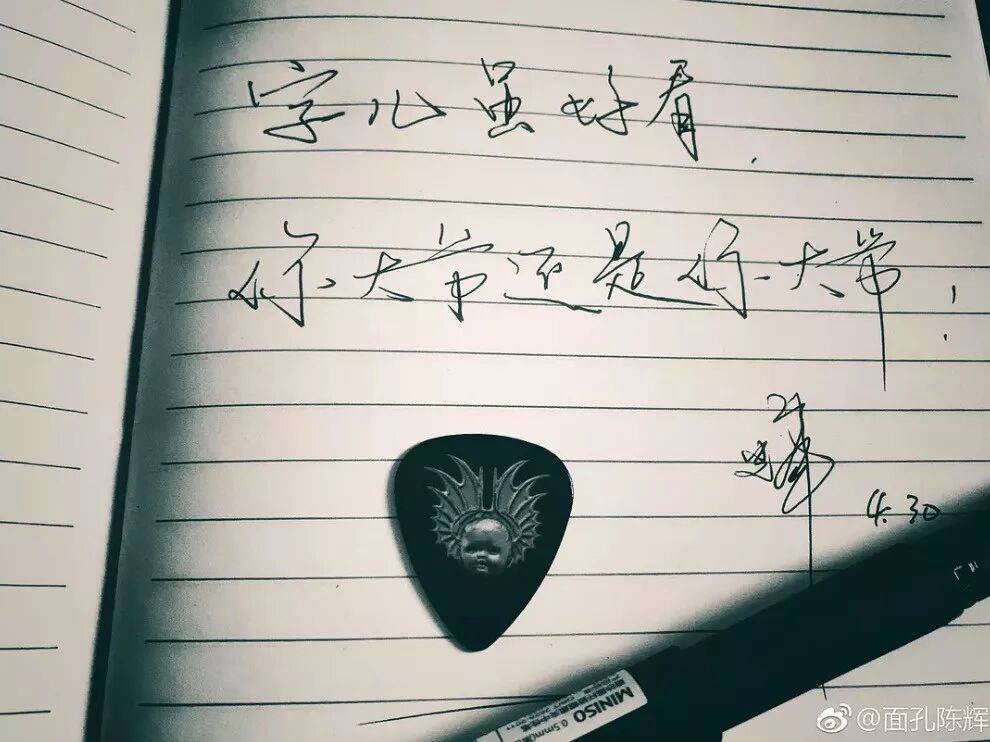 字儿虽好看,
你大爷还是你大爷!
4.30
MINISO
0.5mm
@面孔陈辉